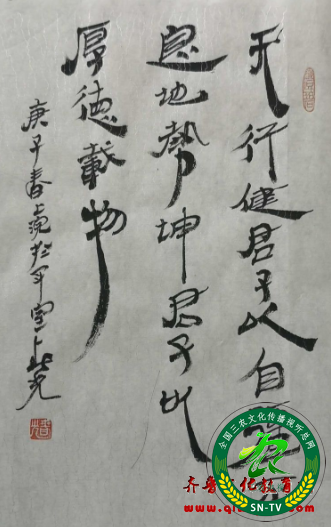 天行健君子以自强不
息地势坤君子以
厚德載物
庚子春
全国三农文化传播视听总网
SN-TV
齐鲁 化教育
www.qi